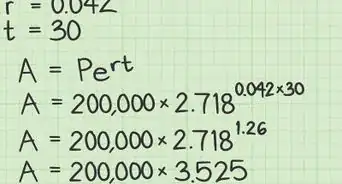 r = 0.042
t = 30
A = Pe^rt
A = 200,000 × 2.718^0.042×30
A = 200,000 × 2.718^1.26
A = 200,000 × 3.525